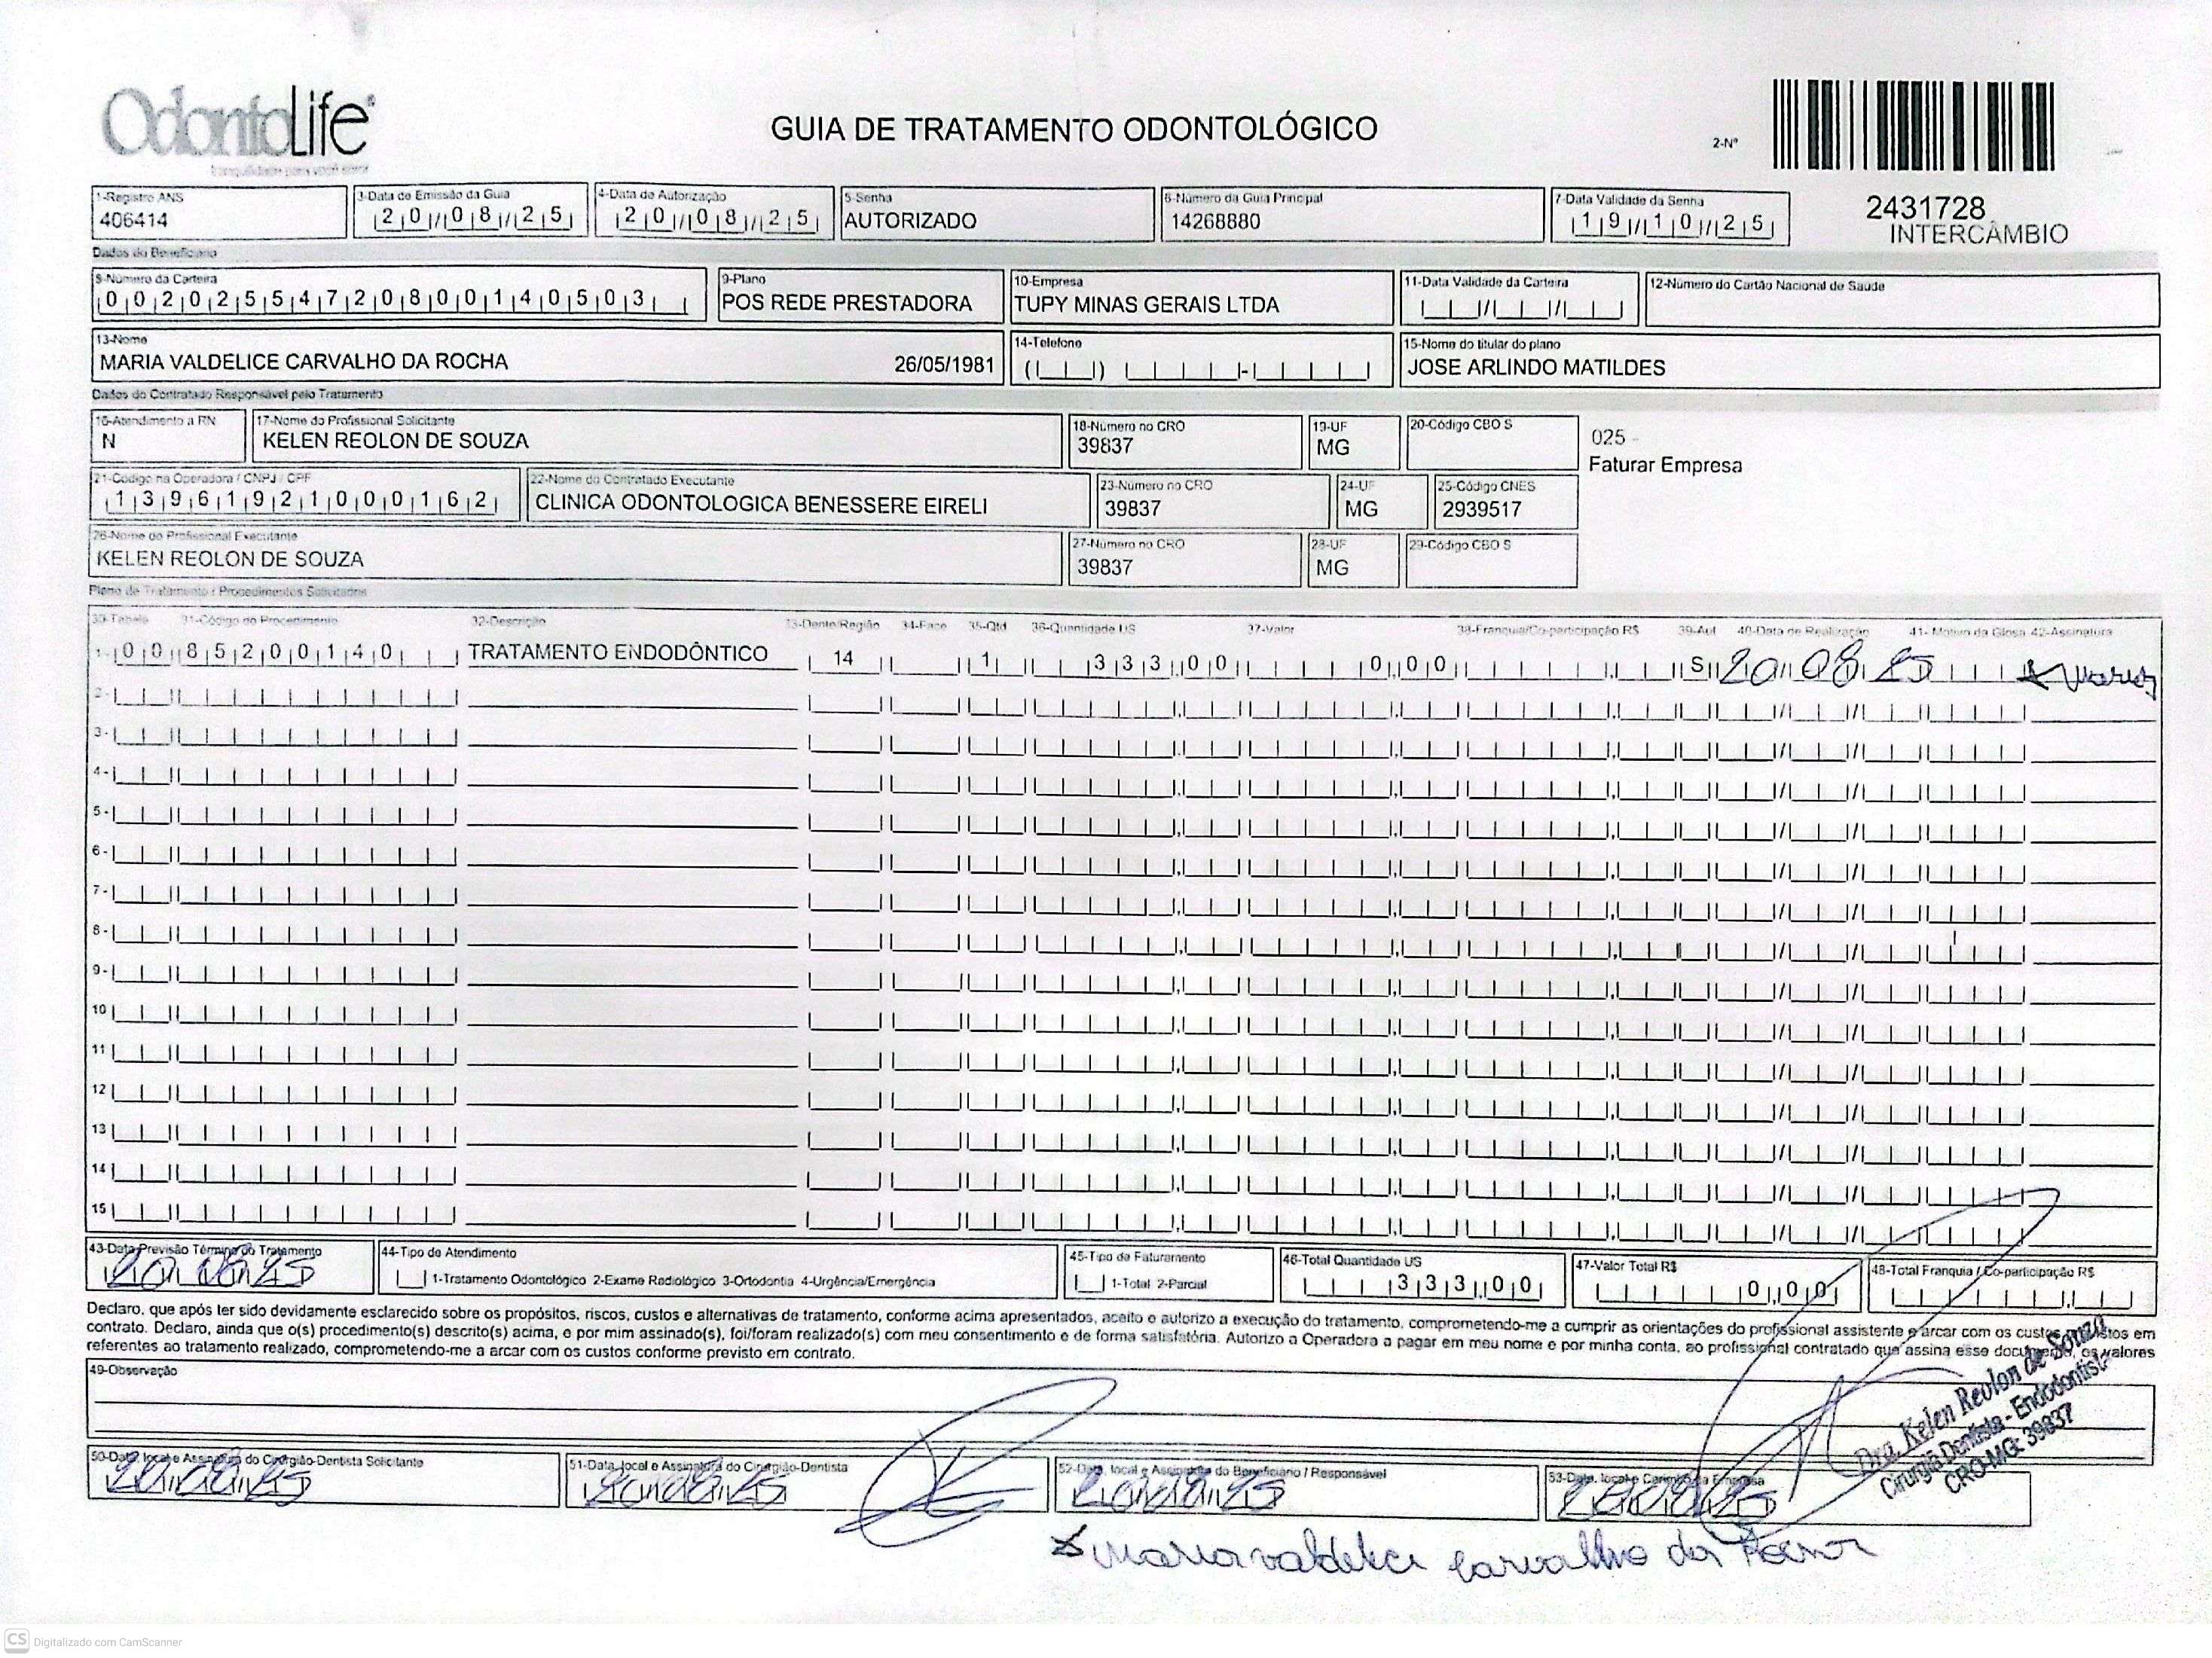 OdontoLife®
tranquilidade para você sorrir
GUIA DE TRATAMENTO ODONTOLÓGICO
2-Nº
2431728
INTERCÂMBIO
1-Registro ANS
406414
3-Data de Emissão da Guia
20/08/25
4-Data de Autorização
20/08/25
5-Senha
AUTORIZADO
6-Número da Guia Principal
14268880
7-Data Validade da Senha
19/10/25
Dados do Beneficiário
8-Número da Carteira
00202554720800140503
9-Plano
POS REDE PRESTADORA
10-Empresa
TUPY MINAS GERAIS LTDA
11-Data Validade da Carteira
12-Número do Cartão Nacional de Saúde
13-Nome
MARIA VALDELICE CARVALHO DA ROCHA 26/05/1981
14-Telefone
15-Nome do titular do plano
JOSE ARLINDO MATILDES
Dados do Contratado Responsável pelo Tratamento
16-Atendimento a RN
N
17-Nome do Profissional Solicitante
KELEN REOLON DE SOUZA
18-Número no CRO
39837
19-UF
MG
20-Código CBO S
025 -
Faturar Empresa
21-Código na Operadora / CNPJ / CPF
13961921000162
22-Nome do Contratado Executante
CLINICA ODONTOLOGICA BENESSERE EIRELI
23-Número no CRO
39837
24-UF
MG
25-Código CNES
2939517
26-Nome do Profissional Executante
KELEN REOLON DE SOUZA
27-Número no CRO
39837
28-UF
MG
29-Código CBO S
Plano de Tratamento / Procedimentos Solicitados
30-Tabela 31-Código do Procedimento 32-Descrição 33-Dente/Região 34-Face 35-Qtd 36-Quantidade US 37-Valor 38-Franquia/Co-participação R$ 39-Aut 40-Data de Realização 41- Motivo da Glosa 42-Assinatura
1- 00 85200140 TRATAMENTO ENDODÔNTICO 14 1 333,00 0,00 S 20/08/25
2-
3-
4-
5-
6-
7-
8-
9-
10
11
12
13
14
15
43-Data Previsão Término do Tratamento
20/08/25
44-Tipo de Atendimento
1-Tratamento Odontológico 2-Exame Radiológico 3-Ortodontia 4-Urgência/Emergência
45-Tipo de Faturamento
1-Total 2-Parcial
46-Total Quantidade US
333,00
47-Valor Total R$
0,00
48-Total Franquia / Co-participação R$
Declaro, que após ter sido devidamente esclarecido sobre os propósitos, riscos, custos e alternativas de tratamento, conforme acima apresentados, aceito e autorizo a execução do tratamento, comprometendo-me a cumprir as orientações do profissional assistente e arcar com os custos previstos em
contrato. Declaro, ainda que o(s) procedimento(s) descrito(s) acima, e por mim assinado(s), foi/foram realizado(s) com meu consentimento e de forma satisfatória. Autorizo a Operadora a pagar em meu nome e por minha conta, ao profissional contratado que assina esse documento, os valores
referentes ao tratamento realizado, comprometendo-me a arcar com os custos conforme previsto em contrato.
49-Observação
Dra. Kelen Reolon de Souza
Cirurgiã Dentista - Endodontista
CRO-MG: 39837
50-Data, local e Assinatura do Cirurgião-Dentista Solicitante
20/08/25
51-Data, local e Assinatura do Cirurgião-Dentista
20/08/25
52-Data, local e Assinatura do Beneficiário / Responsável
20/08/25
53-Data, local e Carimbo da Empresa
20/08/25
x Maria valdelice Carvalho da Rocha
CS Digitalizado com CamScanner